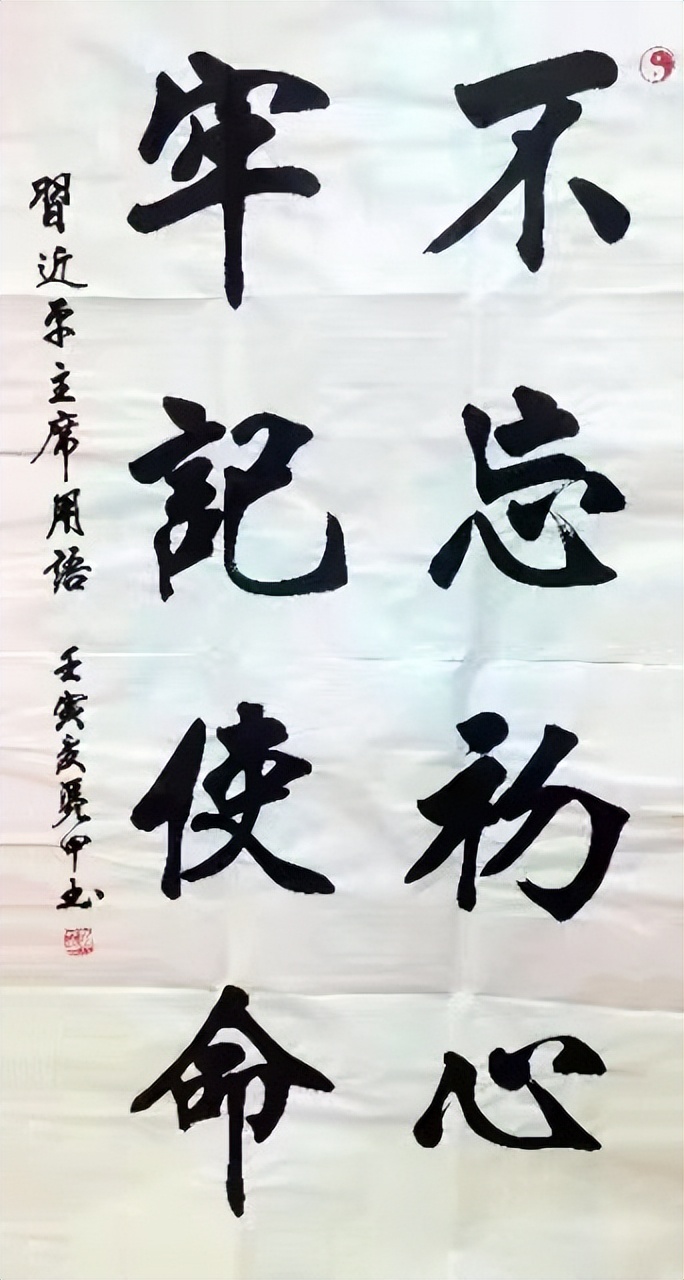 不忘初心
牢記使命
習近平主席用語 壬寅夏 甲书